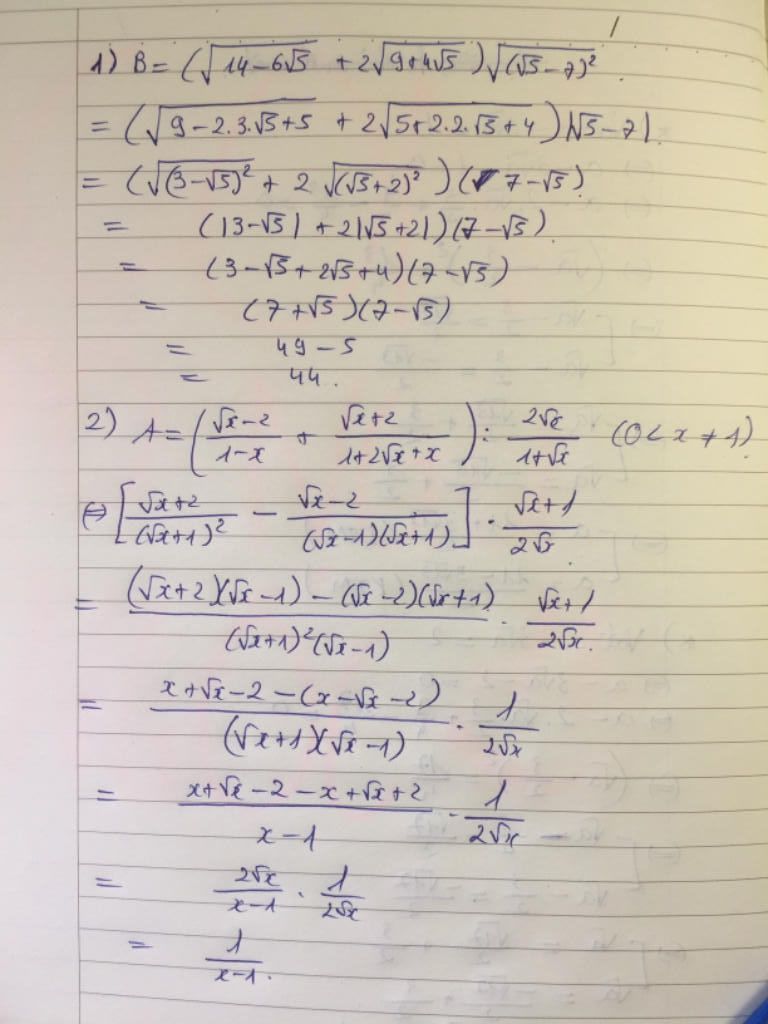 1) B = (√(14-6√5) + 2√(9+4√5))√((√5-7)²)
= (√(9-2.3.√5+5) + 2√(5+2.2.√5+4))|√5-7|.
= (√((3-√5)²) + 2√((√5+2)²))(7-√5)
= (|3-√5| + 2|√5+2|)(7-√5).
= (3-√5+2√5+4)(7-√5)
= (7+√5)(7-√5)
= 49-5
= 44.
2) A = ((√x-2)/(1-x) + (√x+2)/(1+2√x+x)) : (2√x)/(1+√x) (0<x≠1)
⇔ [(√x+2)/((√x+1)²) - (√x-2)/((√x-1)(√x+1))] . (√x+1)/(2√x)
= ((√x+2)(√x-1)-(√x-2)(√x+1))/((√x+1)²(√x-1)) . (√x+1)/(2√x).
= (x+√x-2-(x-√x-2))/((√x+1)(√x-1)) . 1/(2√x)
= (x+√x-2-x+√x+2)/(x-1) . 1/(2√x)
= (2√x)/(x-1) . 1/(2√x)
= 1/(x-1).